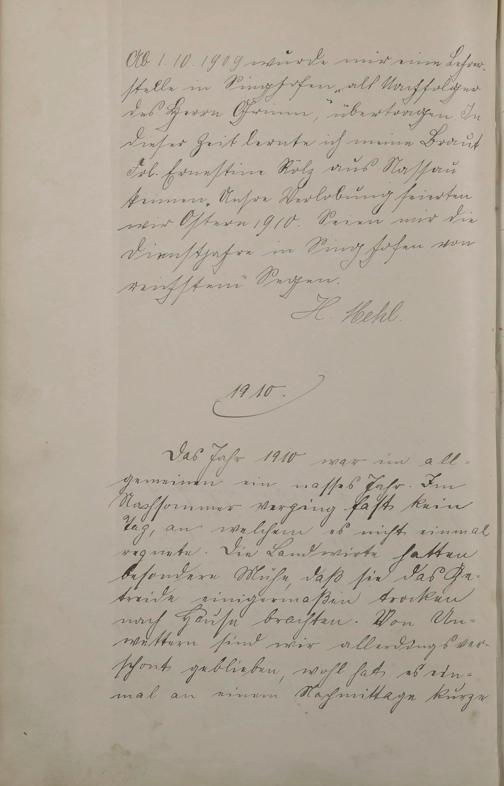 Ab 1.10.1909 wurde mir eine Lehrer-
stelle in Singhofen, als Nachfolger
des Herrn Grimm, übertragen. In
dieser Zeit lernte ich meine Braut
Frl. Ernestine Kolz aus Nassau
kennen. Unsre Verlobung feierten
wir Ostern 1910. Seien mir die
Dienstjahre in Singhofen von
reichstem Segen.
H. Mehl.
1910.
Das Jahr 1910 war im all-
gemeinen ein nasses Jahr. Im
Nachsommer verging fast kein
Tag, an welchem es nicht einmal
regnete. Die Landwirte hatten
besondere Mühe, daß sie das Ge-
treide einigermaßen trocken
nach Hause brachten. Von Un-
wettern sind wir allerdings ver-
schont geblieben, wohl hat es ein-
mal an einem Nachmittage kurze